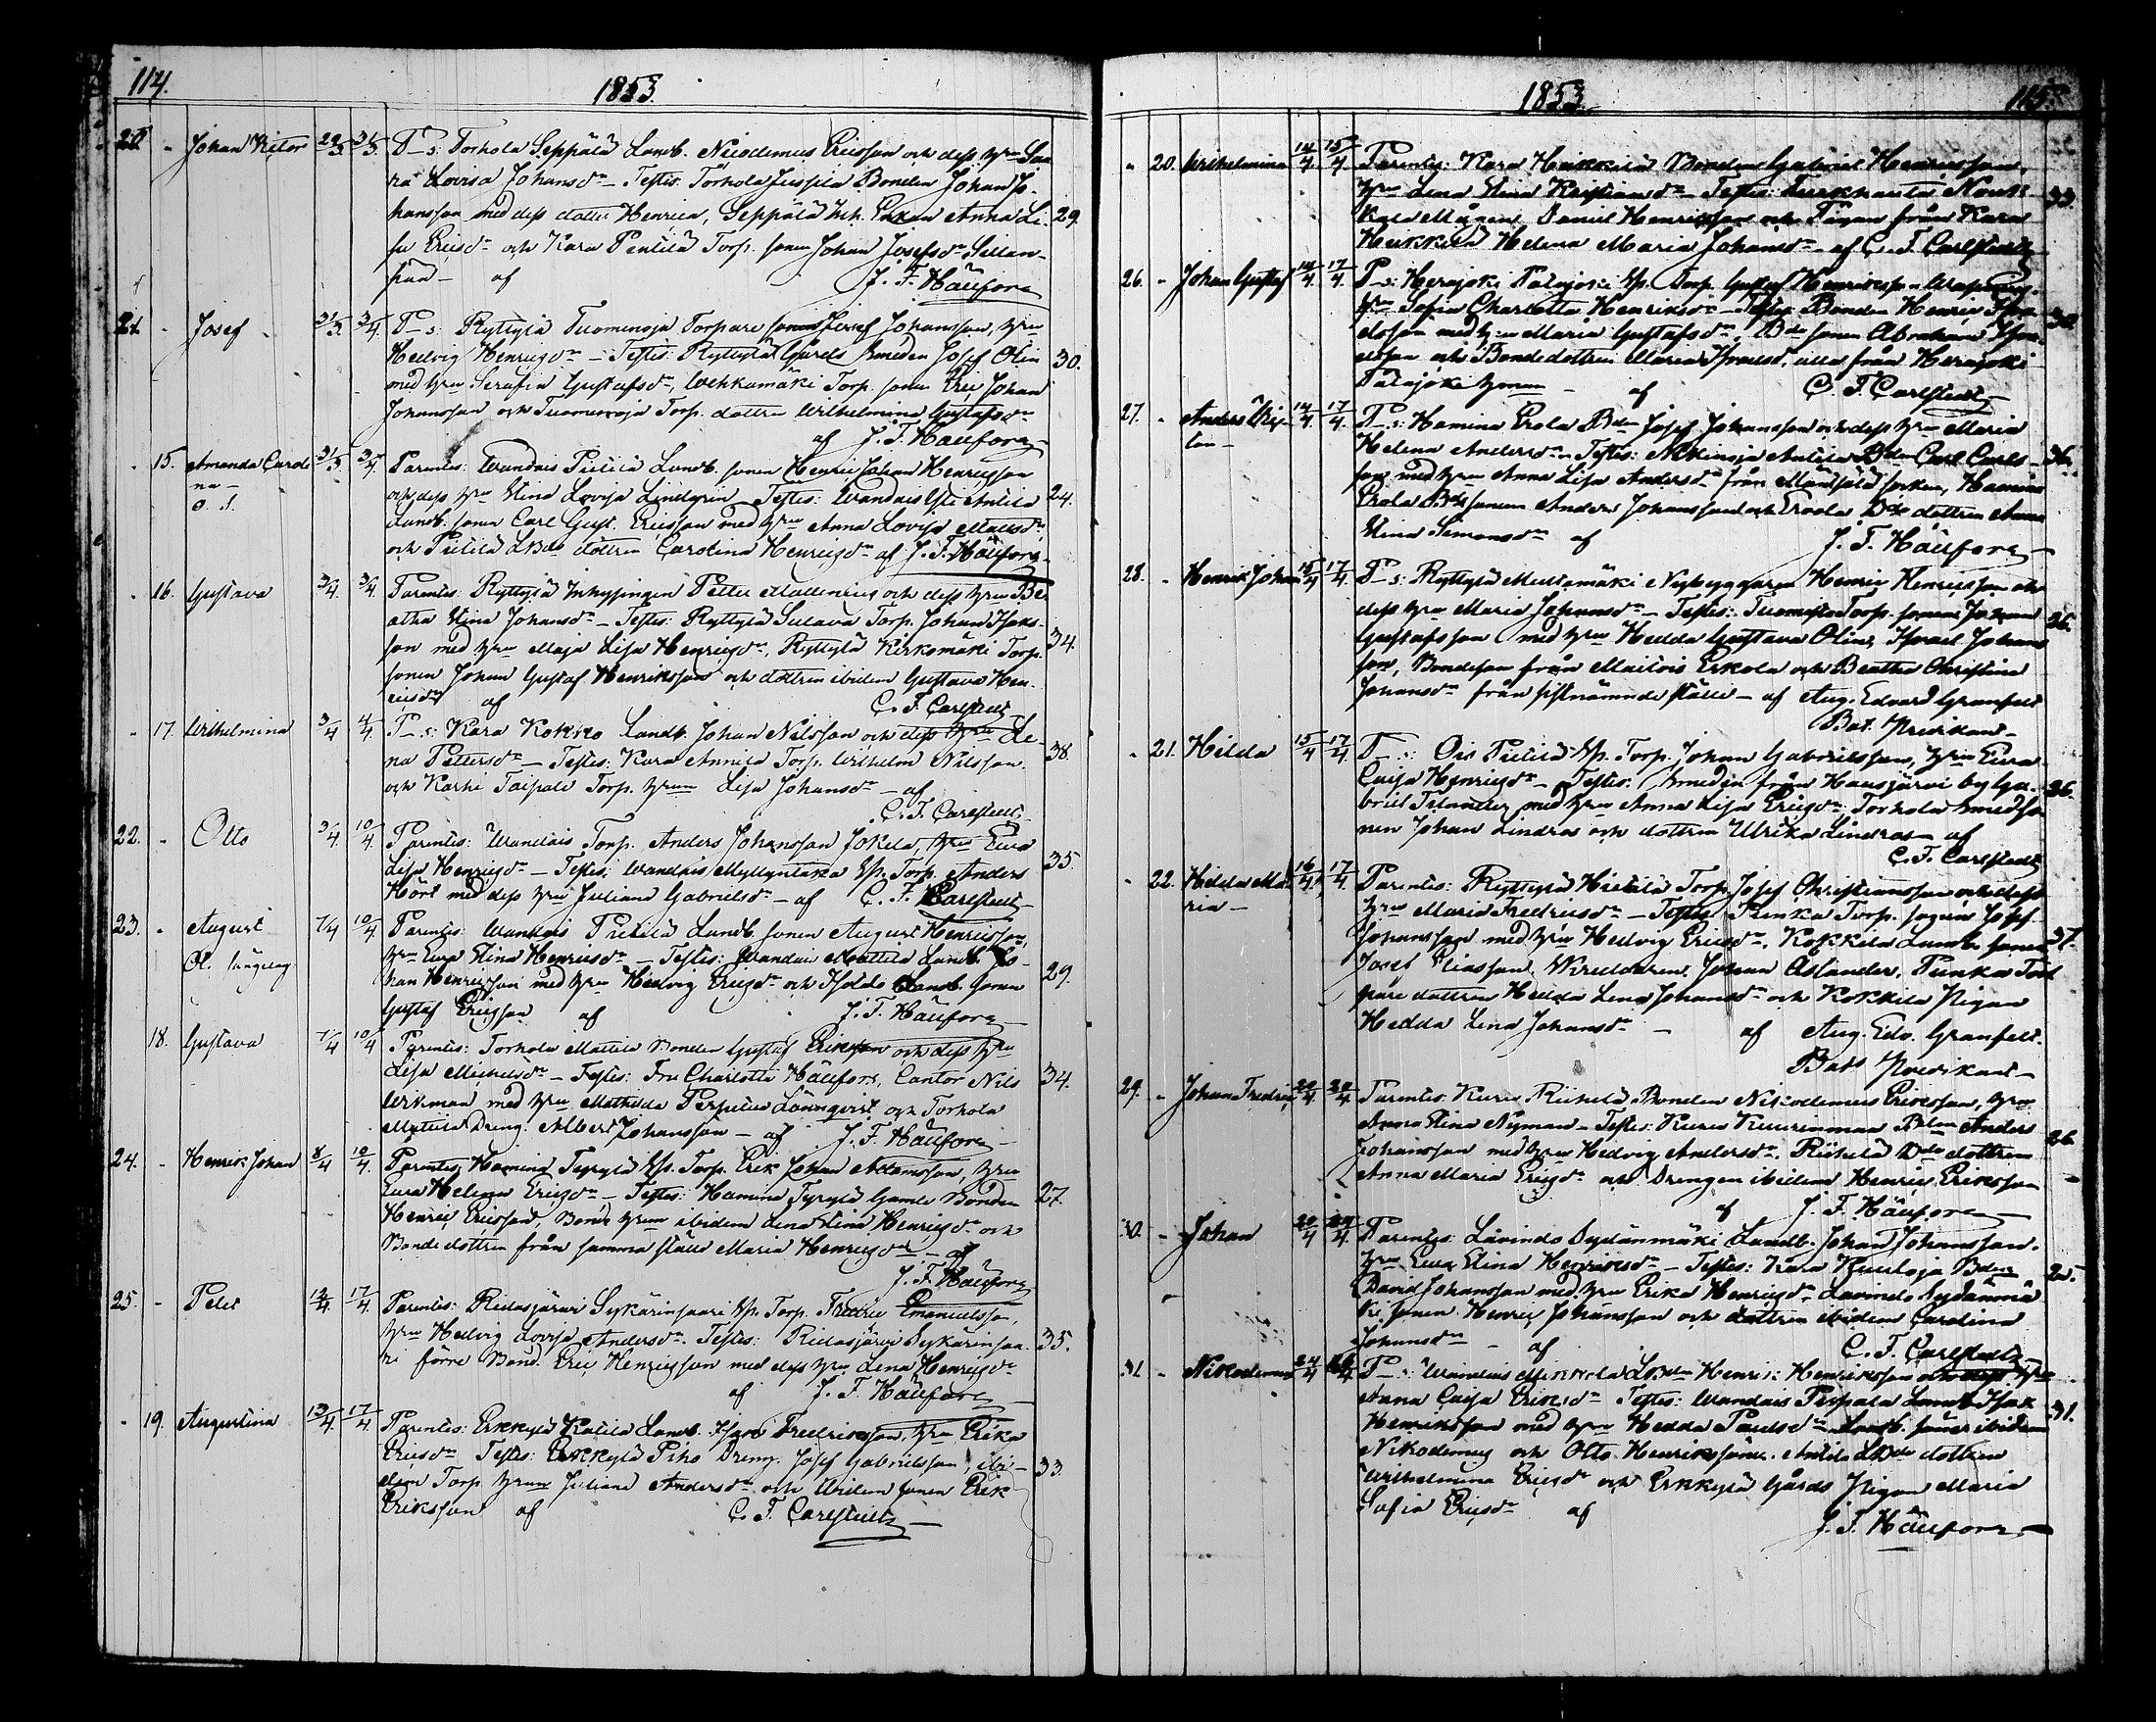 114.
1853.
20. - Johan Victor 29/3. 31/3. P_s: Torhola Seppälä Landb. Nicodemus Ericsson och dess hru Sa-
ra Lovisa Johansdr - Testes: Torhola Jussila Bonden Johan Jo-
hansson med dess dotter Henrica, Seppälä Inh. Enkan Anna Li- 29.
sa Ericsdr och Kara Pentilä Torp. sonen Johan Josefsson
af J. F. Häufors
21. - Josef - 31/3. 3/4. P_s: Ryttylä Tuomenoja Torpare sonen Josef Johansson, hru
Hedvig Henricsdr - Testes: Ryttylä Gårds Smeden Josef Olin 30.
med hru Serafia Gustafsdr, Wehkamäki Torp. sonen Eric Johan
Johansson och Tuomenoja Torp. dottren Wilhelmina Gustafsdr
af J. F. Häufors
- 15. Amanda Caroli 31/3. 3/4. Parentes: Wantais Pietilä Landb. sonen Henric Johan Henricsson
na -
och dess hru Stina Lovisa Lindgrén - Testes: Wantais Yli Anttila 24.
Landb. sonen Carl Gust. Ericsson med hru Anna Lovisa Mattsdr,
och Pietilä LBds dottren Carolina Henricsdr af J. F. Häufors
- 16. Gustava 3/4. 3/4. Parentes: Ryttylä Inhysingen Petter Mattenius och dess hru Be-
atha Stina Johansdr - Testes: Ryttylä Torp. Johan Isaks-
son med hru Maja Lisa Henricsdr, Ryttylä Kirkomäki Torp. 34.
sonen Johan Gustaf Henriksson och dottren ibidem Gustava Hen-
ricsdr af C. F. Carlstedt
- 17. Wilhelmina 3/4 4/4 P_s: Kara Kokko Landb. Johan Nilsson och dess hru Le-
na Pettersdr - Testes: Kara Annila Torp. Wilhelm Nilsson 38.
och Karhi Taipale Torp. hrun Lisa Johansdr - af
C. F. Carlstedt
22. - Otto 3/4. 10/4. Parentes: Wantais Torp. Anders Johansson Jokela, hru Eva
Lisa Henricsdr - Testes: Wantais Myllyntaka Sp. Torp. Anders 35.
Hört med dess hru Juliana Gabrielsdr - af C. F. Carlstedt
23. - August 7/4 10/4. Parentes: Wantais Pietilä Landb. sonen August Henricsson,
hru Eva Stina Henricsdr - Testes: Wantais Mattila Landb. Jo-
han Henricsson med hru Hedvig Ericsdr och Isotalo Landb. sonen 29.
Gustaf Ericsson af J. F. Häufors
18. Gustava 7/4 10/4 Parentes: Torhola Mattila Bonden Gustaf Eriksson och dess hru
Lisa Michelsdr - Testes: Fru Charlotta Häufors, Cantor Nils 34.
Wikman med hru Mathilda Perpetua Lönnqvist och Torhola
Mattila Dreng. Albert Johansson - af J. F. Häufors
24. - Henrik Johan 8/4 10/4. Parentes: Hamina Tyrylä Sp. Torp. Erik Johan Adamsson, hru
Eva Helena Ericsdr - Testes: Hamina Tyrylä Gamle Bonden 27.
Henric Ericsson, Bonde hrun ibidem Lena Stina Henricsdr och
Bonde dottren från samma ställe Maria Henricsdr - af
J. F. Häufors
25. - Peter 12/4. 17/4. Parentes: Ridasjärvi Sykärinsaari Sp. Torp. Fredric Emanuelsson,
hru Hedvig Lovisa Andersdr. Testes: Ridasjärvi Sykärinsaa- 35.
ri förre Bond. Eric Henricsson med dess hru Lena Henricsdr
af J. F. Häufors
- 19. Augustina 13/4. 17/4. Parentes: Erkkylä Katila Landb. Isaac Fredricsson, hru Erika
Ericsdr Testes: Erkkylä Piho Dreng. Josef Gabrielsson, ibi- 33.
dem Torp. hrun Juliana Andersdr och ibidem sonen Erik
Eriksson af C. F. Carlstedt
1853.
115.
- 20. Wilhelmina 14/4. 15/4. Parentes: Kara Heikkilä Bonden Gabriel Henricsson,
hru Lena Stina Kristiansdr - Testes: 33.
Mågen Daniel Henriksson och Pigan från Kara
Heikkilä Helena Maria Johansdr - af C. F. Carlstedt
26. - Johan Gustaf 14/4. 17/4. P_s: Herajoki Pätojoki Sp. Torp. Gustaf Henriksson
hru Sofia Charlotta Henriksdr - Testes: Bonden Henric 30.
med hru Maria Gustafsdr, Bde sonen Abraham
och Bondedottren Maria alla från Herajoki
Pätojoki hemman - af C. F. Carlstedt
27. - Anders Wic- 14/4. 17/4. P_s: Hamina Erola Bdn Josef Johansson och dess hru Maria
tor -
Helena Andersdr. Testes: Nikinoja Anttila Bdn Carl Carls- 36.
son med hru Anna Lisa Andersdr från Mäntsälä socken, Hamina
Erola Bdesonen Anders Johansson och Erola Bde dottren Anna
Stina Simonsdr af J. F. Häufors
28. - Henrik Johan 15/4 17/4. P_s: Ryttylä Mustamäki Nybyggaren Henric Henricsson och
dess hru Maria Johansdr - Testes: Tuomisto Torp. sonen Johan 26.
Gustafsson med hru Hedda Gustava Olin, Israel Johans
son, Bondeson från Maitois Erkola och Beatha Christina
Johansdr från sistnämnde ställe - af Aug. Edvard Granfelt
Bat. Predikant -
- 21. Hilda 15/4 17/4. P_s: Ois Pietilä Sp. Torp. Johan Gabrielsson, hru Eva
Caisa Henricsdr - Testes: Smeden från Hausjärvi by Ga- 26.
briel Telander med hru Anna Lisa Ericsdr. Torhola Smedso-
nen Johan Lindros och dottren Ulrika Lindros - af
C. F. Carlstedt
- 22. Hedda Ma- 16/4. 17/4. Parentes: Ryttylä Hietala Torp. Josef Christiansson och dess
ria -
hru Maria Fredricsdr - Testes: Punka Torp. sonen Josef
Johansson med hru Hedvig Ericsdr, Kokkila Landb. sonen 37.
Josef Eliasson, Skreddaren Johan Aslander, Punka Tor
pare dottren Hedda Lena Johansdr och Kokkila Pigan
Hedda Lena Johansdr - af Aug. Edv. Granfelt.
Bats Predikant -
29. - Johan Fredric 20/4. 24/4. Parentes: Kuru Riihelä Bonden Nikodemus Ericsson, hru
Anna Stina Nyman - Testes: Kuru Kuurinmaa Bdn Anders 26.
Johansson med hru Hedvig Andersdr. Riihelä Bde dottren
Anna Maria Ericsdr och Drengen ibidem Henric Ericsson
af J. F. Häufors
30. - Johan 20/4 24/4. Parentes: Lavinto Sydänmäki Landb. Johan Johansson,
hru Eva Stina Henricsdr - Testes: Kara Bdn 25.
David Johansson med hru Erika Henricsdr Lavinto Sydänmä
ki sonen Henric Johansson och dottren ibidem Carolina
Johansdr - af C. F. Carlstedt
31. - Nikodemus 24/4 24/4. P_s: Wantais LBdn Henric Henricsson och dess hru
Anna Caisa Ericsdr Testes: Wantais Perpala Landb. Isak 31.
Henriksson med hru Hedda Paulsdr Landb. söner ibidem
Nikodemus och Otto Henrikssöner. Anttila LBds dottren
Wilhelmina Ericsdr och Erkkylä Gårds Pigan Maria
Sofia Ericsdr af
J. F. Häufors